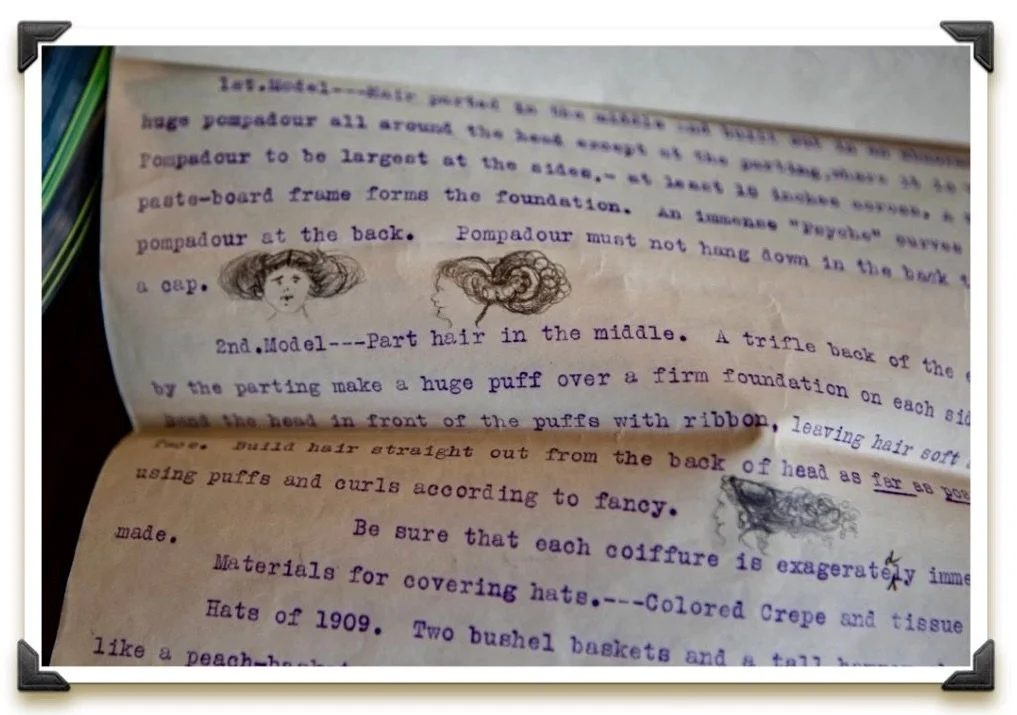 1st.Model---Hair parted in the middle and built out in an
huge pompadour all around the head except at the parting, where it is
Pompadour to be largest at the sides,- at least 18 inches across, a
paste-board frame forms the foundation. An immense "Psyche" curves
pompadour at the back. Pompadour must not hang down in the back
a cap.
2nd.Model---Part hair in the middle. A trifle back of the
by the parting make a huge puff over a firm foundation on each
band the head in front of the puffs with ribbon, leaving hair soft
face. Build hair straight out from the back of head as far as
using puffs and curls according to fancy.
Be sure that each coiffure is exagerately
made.
Materials for covering hats.---Colored Crepe and tissue
Hats of 1909. Two bushel baskets and a tall
like a